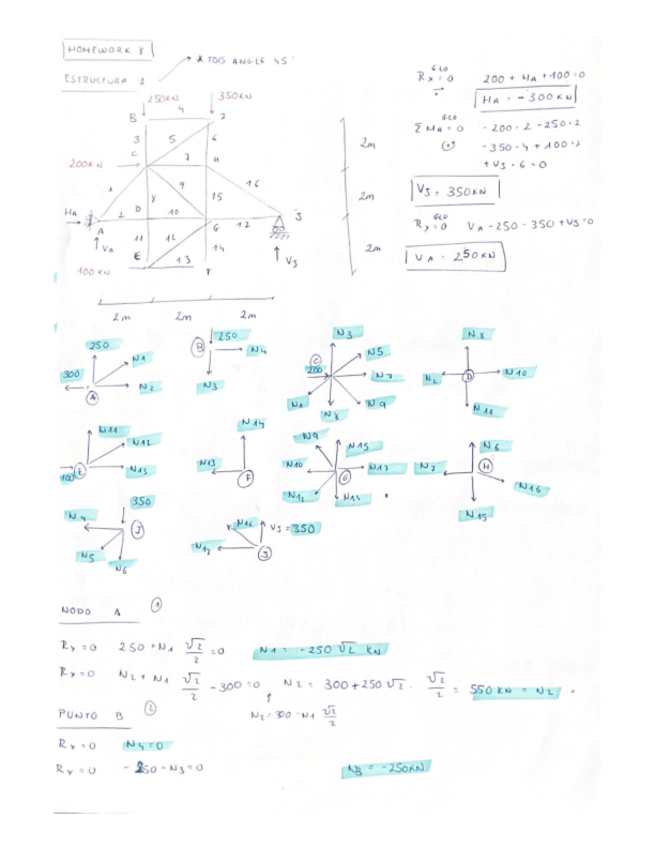 HOMEWORK 8
ESTRUCTURA 1
* TOIS ANGLE 45°
250KN
350KN
B 4 I
3 5 6
C 7 H
200KN
1 9 15 16
HA A 2 D 8 10 G 12 J
VA 11 12 14 VJ
E 13 F
100 KN
2m 2m 2m
2m
2m
2m
Rx = 0 GLO 200 + HA + 100 = 0
HA = -300KN
Σ MA = 0 GLO -200·2 -250·2
-350·4 + 100·2
+VJ·6 = 0
VJ = 350KN
Ry = 0 GLO VA -250 -350 + VJ = 0
VA = 250KN
250 300 N1 N2 A
250 B N4 N3
N3 C 200 N5 N7 N1 N8 N9
N8 N2 D N10 N11
N11 N12 100 E N13
N14 N13 F
N9 N15 N10 N12 G N12 N14
N6 N7 H N16 N15
350 N4 I N5 N6
N16 VJ = 350 N12 J
NODO A 1
Ry = 0 250 + N1 √2/2 = 0 N1 = -250 √2 KN
Rx = 0 N2 + N1 √2/2 - 300 = 0 N2 = 300 + 250 √2 · √2/2 = 550 KN = N2
N2 = 300 - N1 √2/2
PUNTO B 2
Rx = 0 N4 = 0
Ry = 0 - 250 - N3 = 0 N3 = -250KN